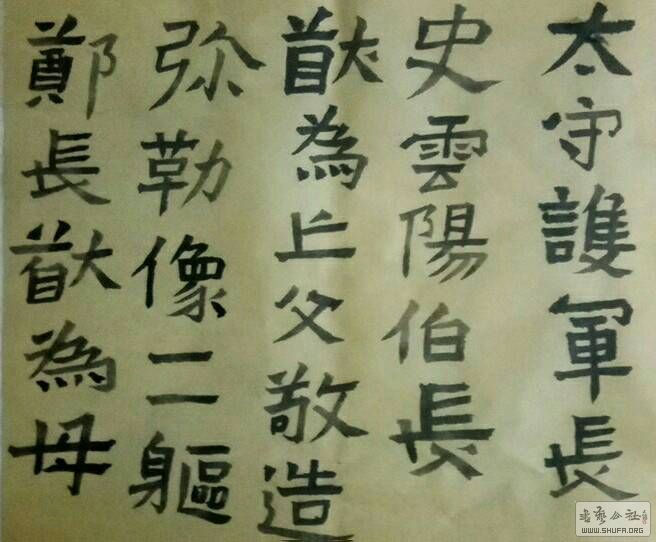 太守謢軍長
史雲陽伯長
猷為亡父敬造
弥勒像二軀
鄭長猷為母
书艺公社
WWW.SHUFA.ORG